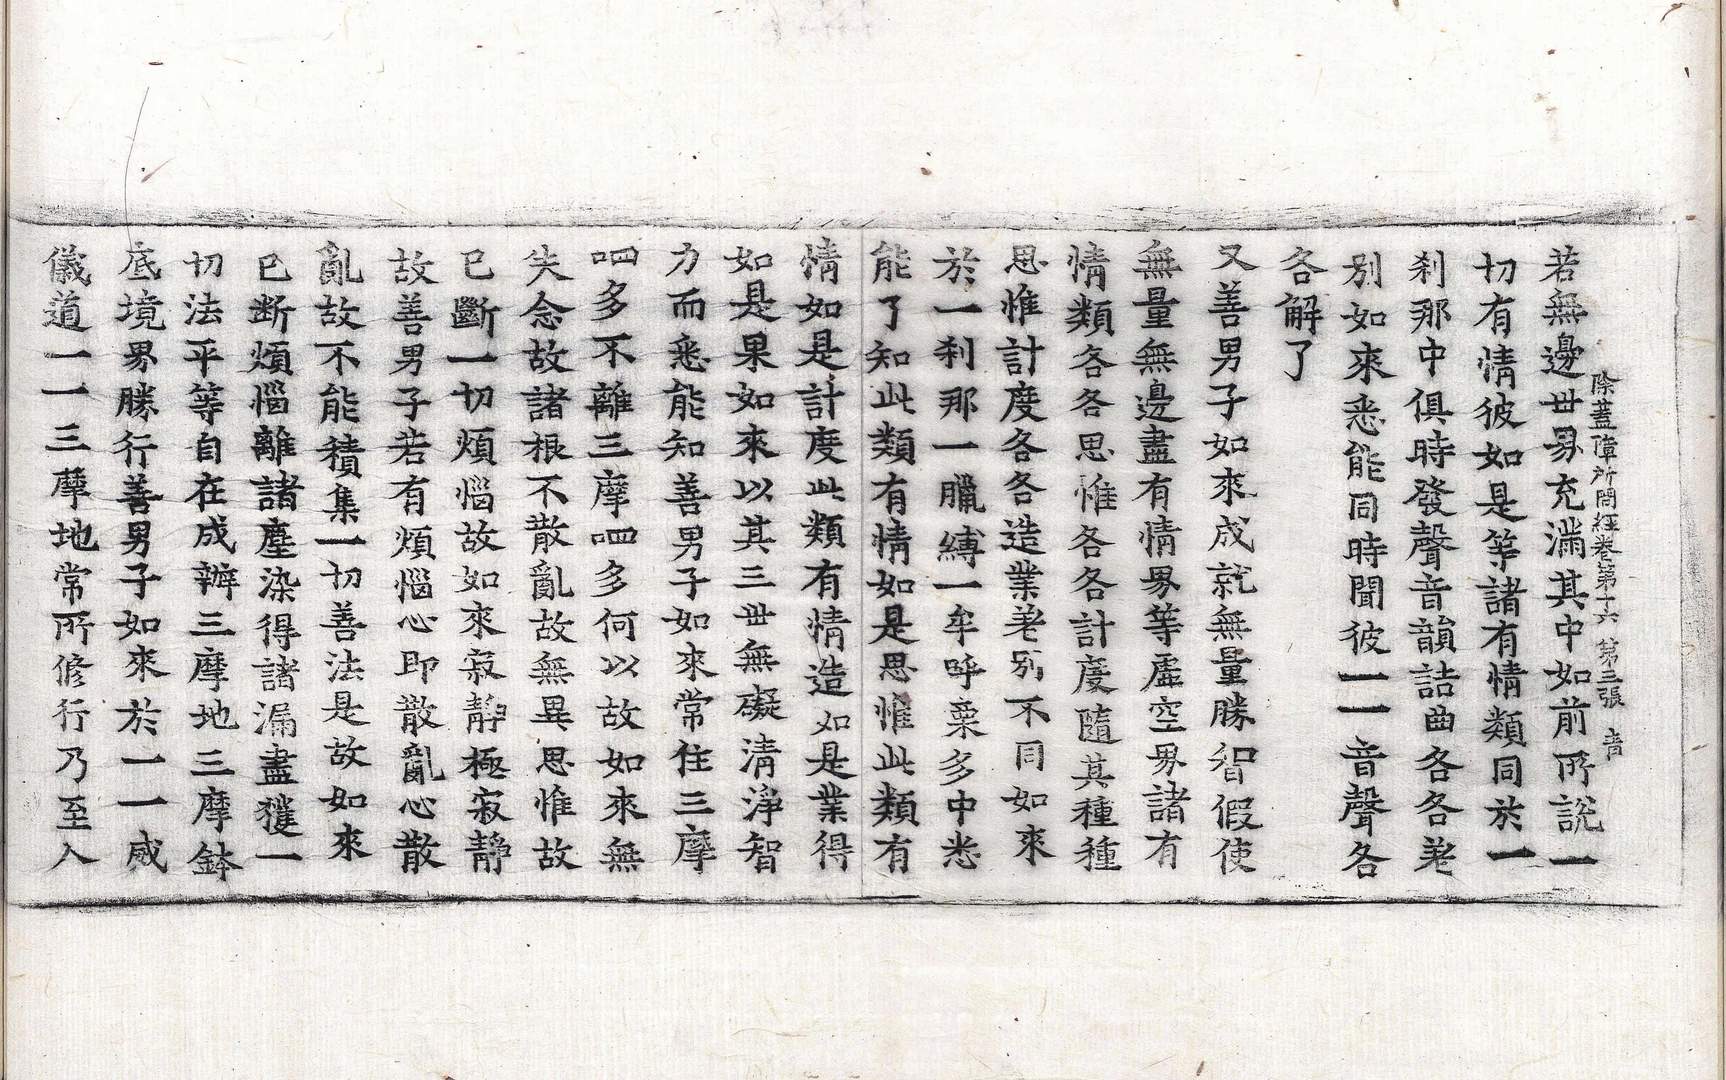 除蓋障所問經卷第十六 第三張 音
若無邊世界充滿其中如前所說一
切有情彼如是等諸有情類同於一
刹那中俱時發聲音韻詰曲各各差
別如來悉能同時聞彼一一音聲各
各解了
又善男子如來成就無量勝智假使
無量無邊盡有情界等虛空界諸有
情類各各思惟各各計度隨其種種
思惟計度各各造業差別不同如來
於一刹那一臘縛一牟呼栗多中悉
能了知此類有情如是思惟此類有
情如是計度此類有情造如是業得
如是果如來以其三世無礙清淨智
力而悉能知善男子如來常住三摩
呬多不離三摩呬多何以故如來無
失念故諸根不散亂故無異思惟故
已斷一切煩惱故如來寂靜極寂靜
故善男子若有煩惱心即散亂心散
亂故不能積集一切善法是故如來
已斷煩惱離諸塵染得諸漏盡獲一
切法平等自在成辦三摩地三摩鉢
底境界勝行善男子如來於一一威
儀道一一三摩地常所修行乃至入